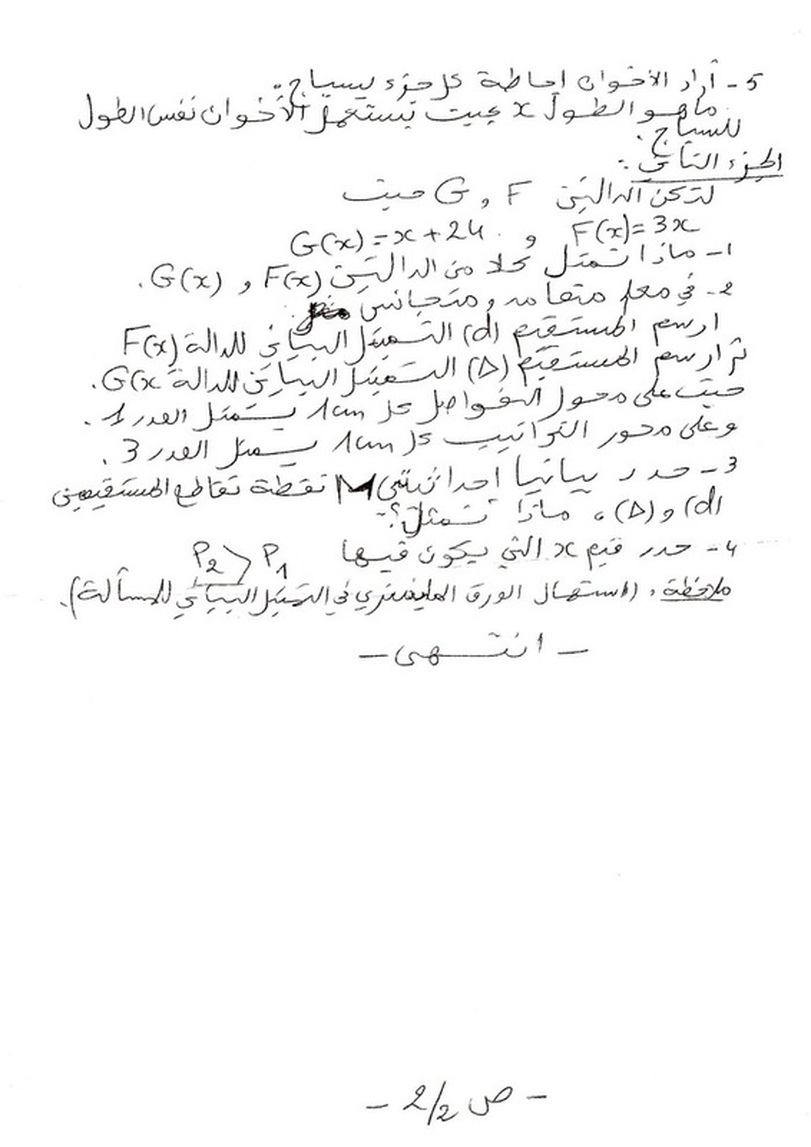 5- أراد الأخوان إحاطة كل جزء بسياج.
ما هو الطول x بحيث يستعمل الأخوان نفس الطول
للسياج.
الجزء الثاني:
لتكن الدالتين F و G حيث
F(x)=3x و G(x)=x+24
1- ماذا تمثل كلا من الدالتين F(x) و G(x).
2- في معلم متعامد ومتجانس
ارسم المستقيم (d) التمثيل البياني للدالة F(x)
ثم ارسم المستقيم (Δ) التمثيل البياني للدالة G(x.
حيث على محول الفواصل كل 1cm يتمثل القدر 1.
وعلى محور التراتيب كل 1cm يمثل القدر 3.
3- حدد بيانيا احداثيتي M نقطة تقاطع المستقيمين
(d) و (Δ)، ماذا تمثل؟
4- حدد قيم x التي يكون فيها P2 > P1
ملاحظة: (استعمال الورق المليمتري في التمثيل البياني للمسألة).
- انتهى -
- ص 2/2 -